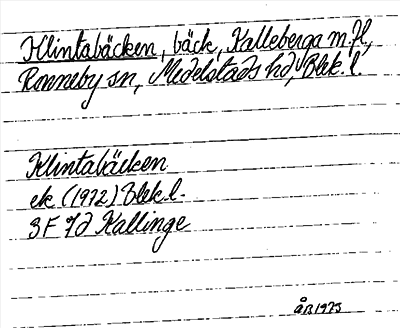 Klintabäcken, bäck, Kalleberga m.fl.,
Ronneby sn, Medelstads hd, Blek. l.
Klintabäcken
ek (1972) Blek.l.
3F 7d Kallinge
ÅB 1975